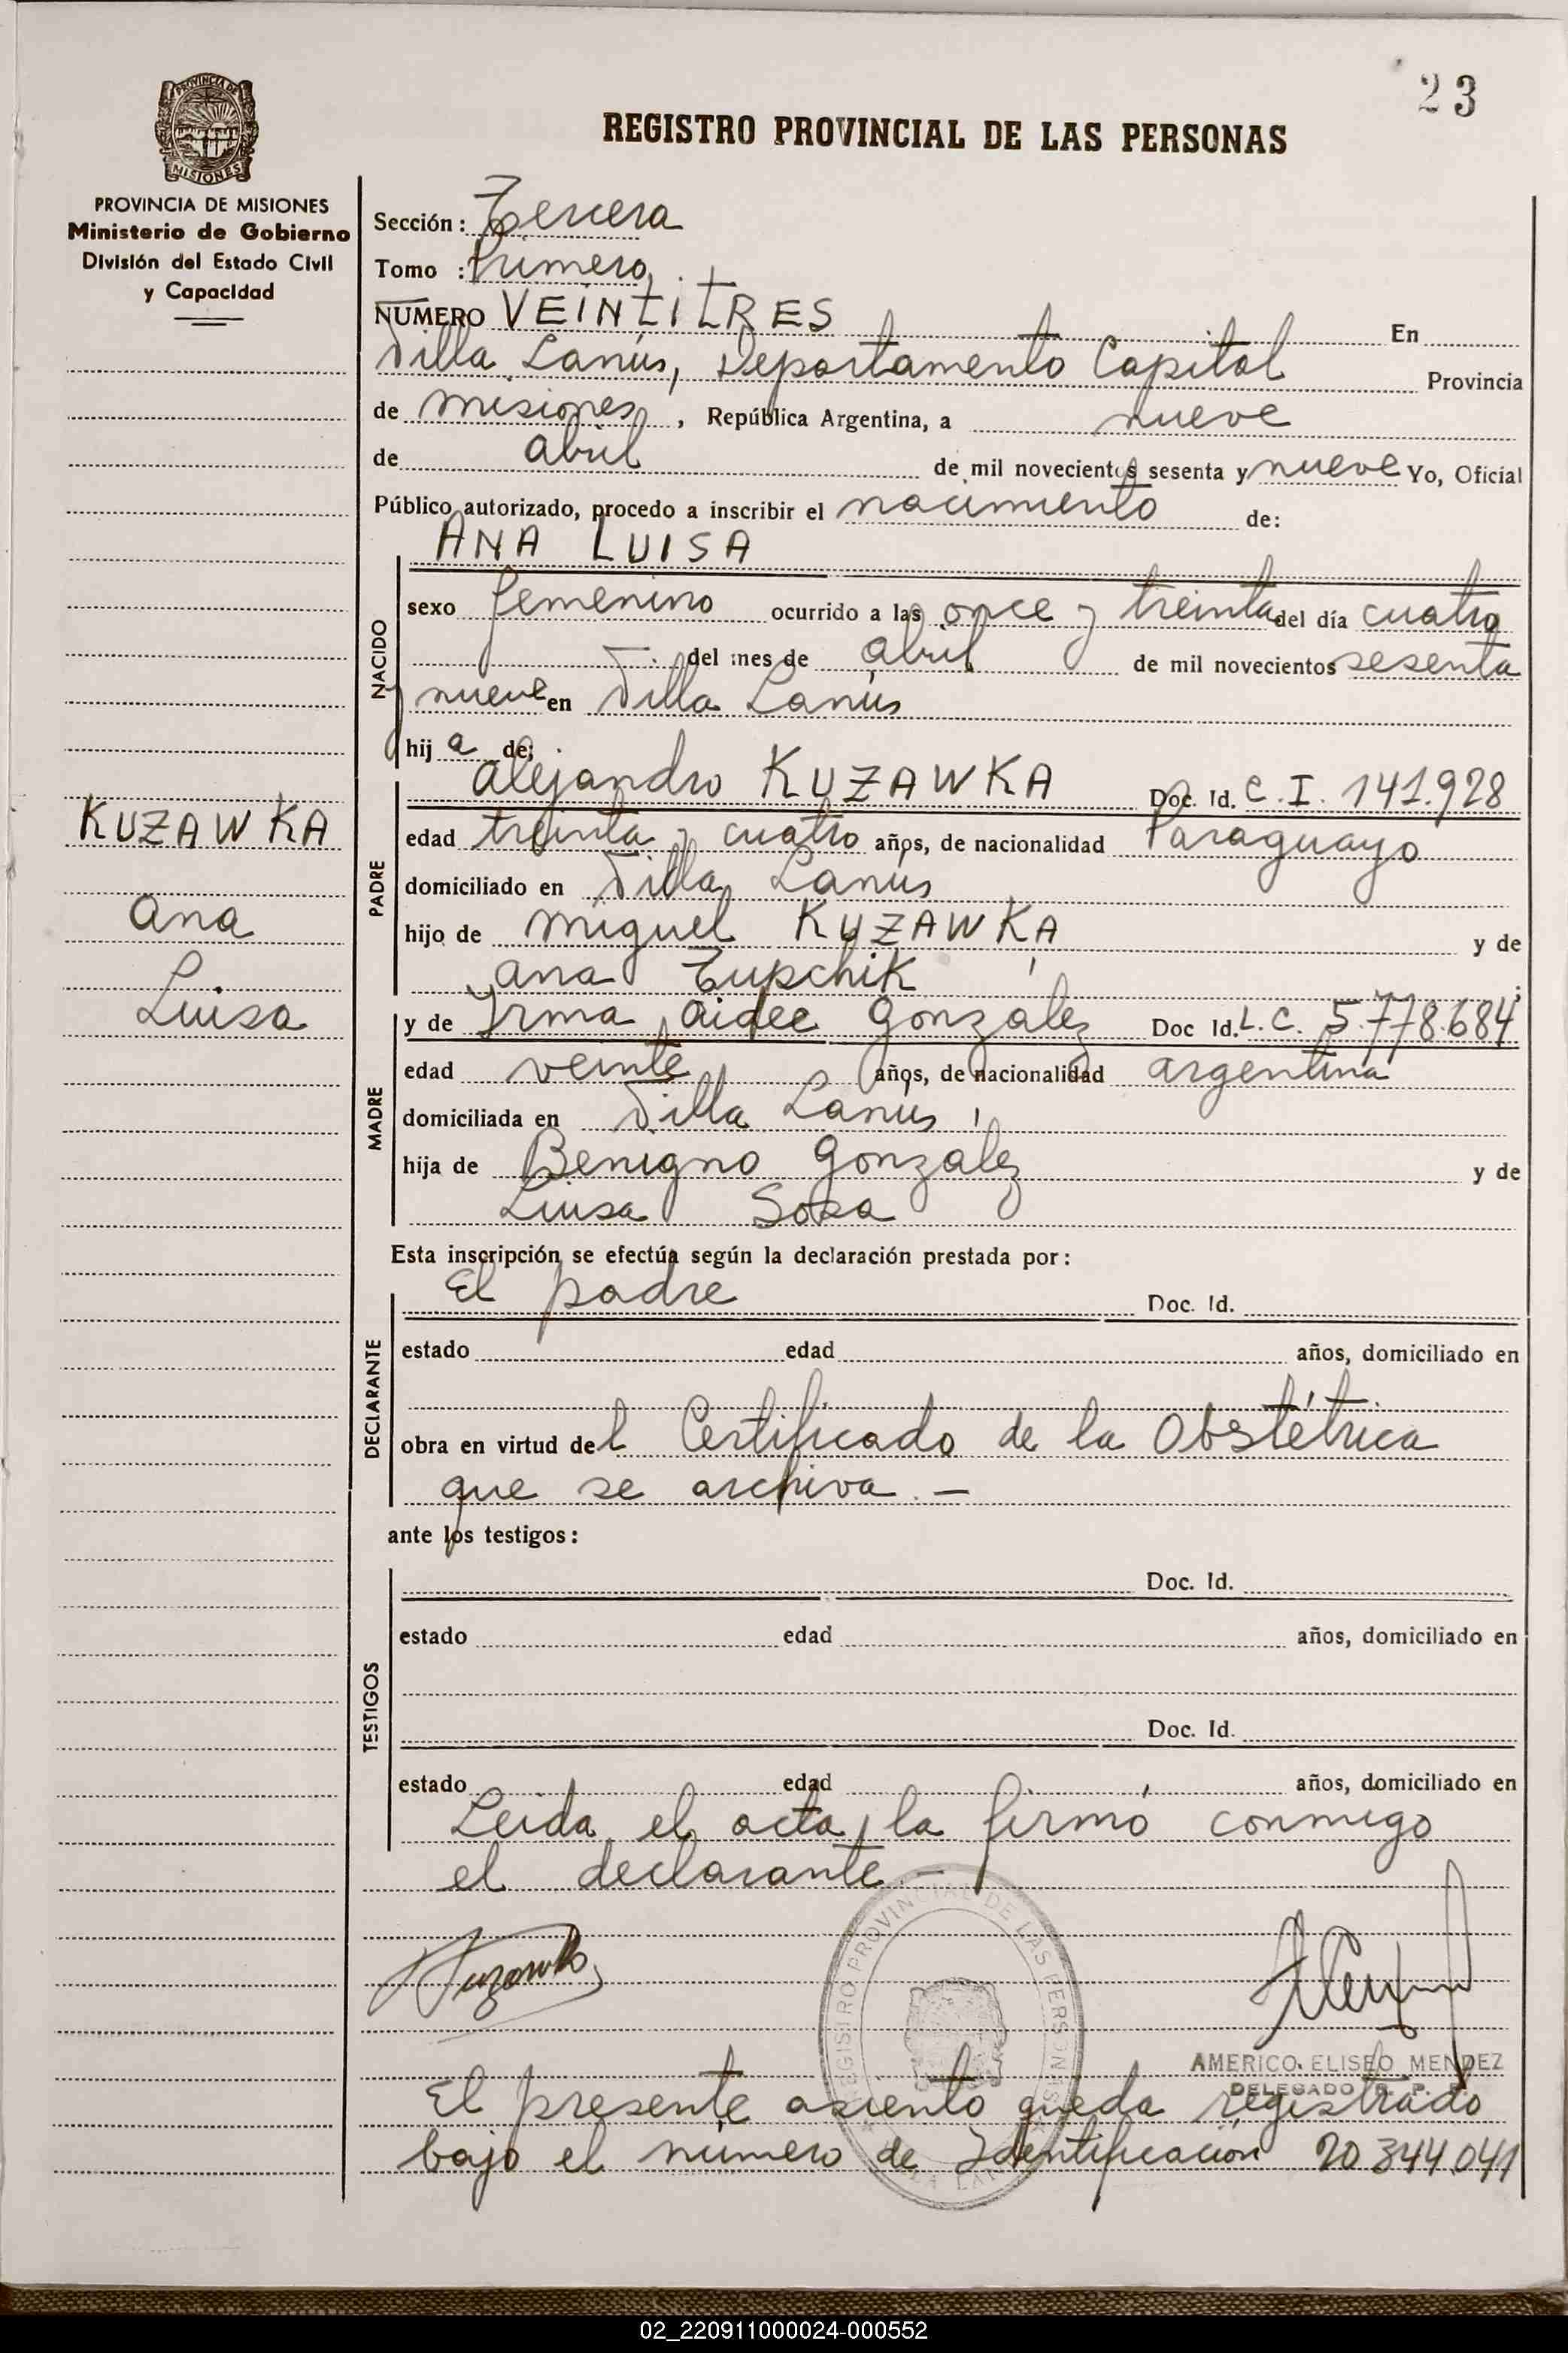 23
REGISTRO PROVINCIAL DE LAS PERSONAS
PROVINCIA DE
MISIONES
PROVINCIA DE MISIONES
Ministerio de Gobierno
División del Estado Civil
y Capacidad
KUZAWKA
Ana
Luisa
Sección: Tercera
Tomo : Primero
NUMERO VEINTITRES En
Villa Lanús, Departamento Capital Provincia
de Misiones, República Argentina, a nueve
de abril de mil novecientos sesenta y nueve Yo, Oficial
Público autorizado, procedo a inscribir el nacimiento de:
NACIDO
ANA LUISA
sexo femenino ocurrido a las once y treinta del día cuatro
del mes de abril de mil novecientos sesenta
y nueve en Villa Lanús
hij a de:
PADRE
Alejandro KUZAWKA Doc. Id. C. I. 141.928
edad treinta y cuatro años, de nacionalidad Paraguayo
domiciliado en Villa Lanús
hijo de Miguel KUZAWKA y de
Ana Tupchik ;
MADRE
y de Irma Aidee Gonzalez Doc Id. L. C. 5.778.684
edad veinte años, de nacionalidad argentina
domiciliada en Villa Lanús,
hija de Benigno Gonzalez y de
Luisa Sosa
Esta inscripción se efectúa según la declaración prestada por:
DECLARANTE
El padre Doc. Id.
estado edad años, domiciliado en
obra en virtud del Certificado de la Obstétrica
que se archiva.-
ante los testigos:
TESTIGOS
Doc. Id.
estado edad años, domiciliado en
Doc. Id.
estado edad años, domiciliado en
Leida el acta, la firmó conmigo
el declarante.-
Kuzawka
REGISTRO PROVINCIAL DE LAS PERSONAS
AMERICO ELISEO MENDEZ
DELEGADO R. P. P.
El presente asiento queda registrado
bajo el número de Identificación 20344.041
02_220911000024-000552